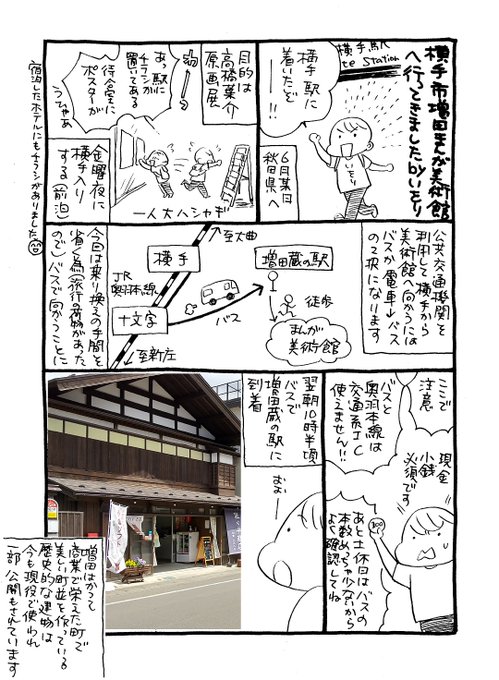 横手市増田まんが美術館
へ行ってきましたbyいをり
横手駅
te Station
横手駅に
着いたぞ
ーー!!
6月某日
秋田県へ
いをり
目的は
高橋葉介
原画展
あっ駅に
チラシが
置いてある
待合室に
ポスターが
うひゃあ
一人大ハシャギ
金曜夜に
横手入り
する(前泊)
宿泊したホテルにもチラシがありました
公共交通機関を
利用して横手から
美術館へ向かうには
バスか電車→バス
の2択になります
至大曲
横手
JR
奥羽本線
十文字
至新庄
バス
増田蔵の駅
徒歩
まんが
美術館
今回は乗り換えの手間を
省く為(旅行の荷物があった
ので)バスで向かうことに
ここで
注意
現金
小銭
必須です
バスと
奥羽本線は
交通系IC
使えません!!
100
あと土休日はバスの
本数めっちゃ少ないから
よく確認してね
翌朝10時半頃
バスで
増田蔵の駅に
到着
おぉー
増田はかつて
商業で栄えた町で
美しい町並を作っている
歴史的な建物は
今も現役で使われ
一部公開もされています